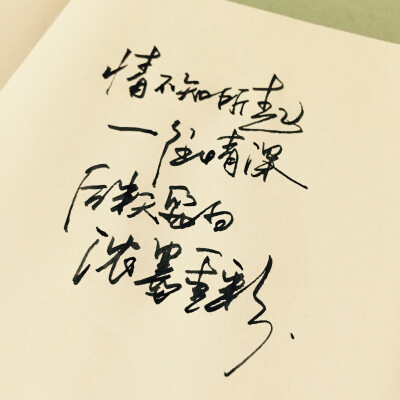 情不知所起
一往情深
后
浓墨重彩.